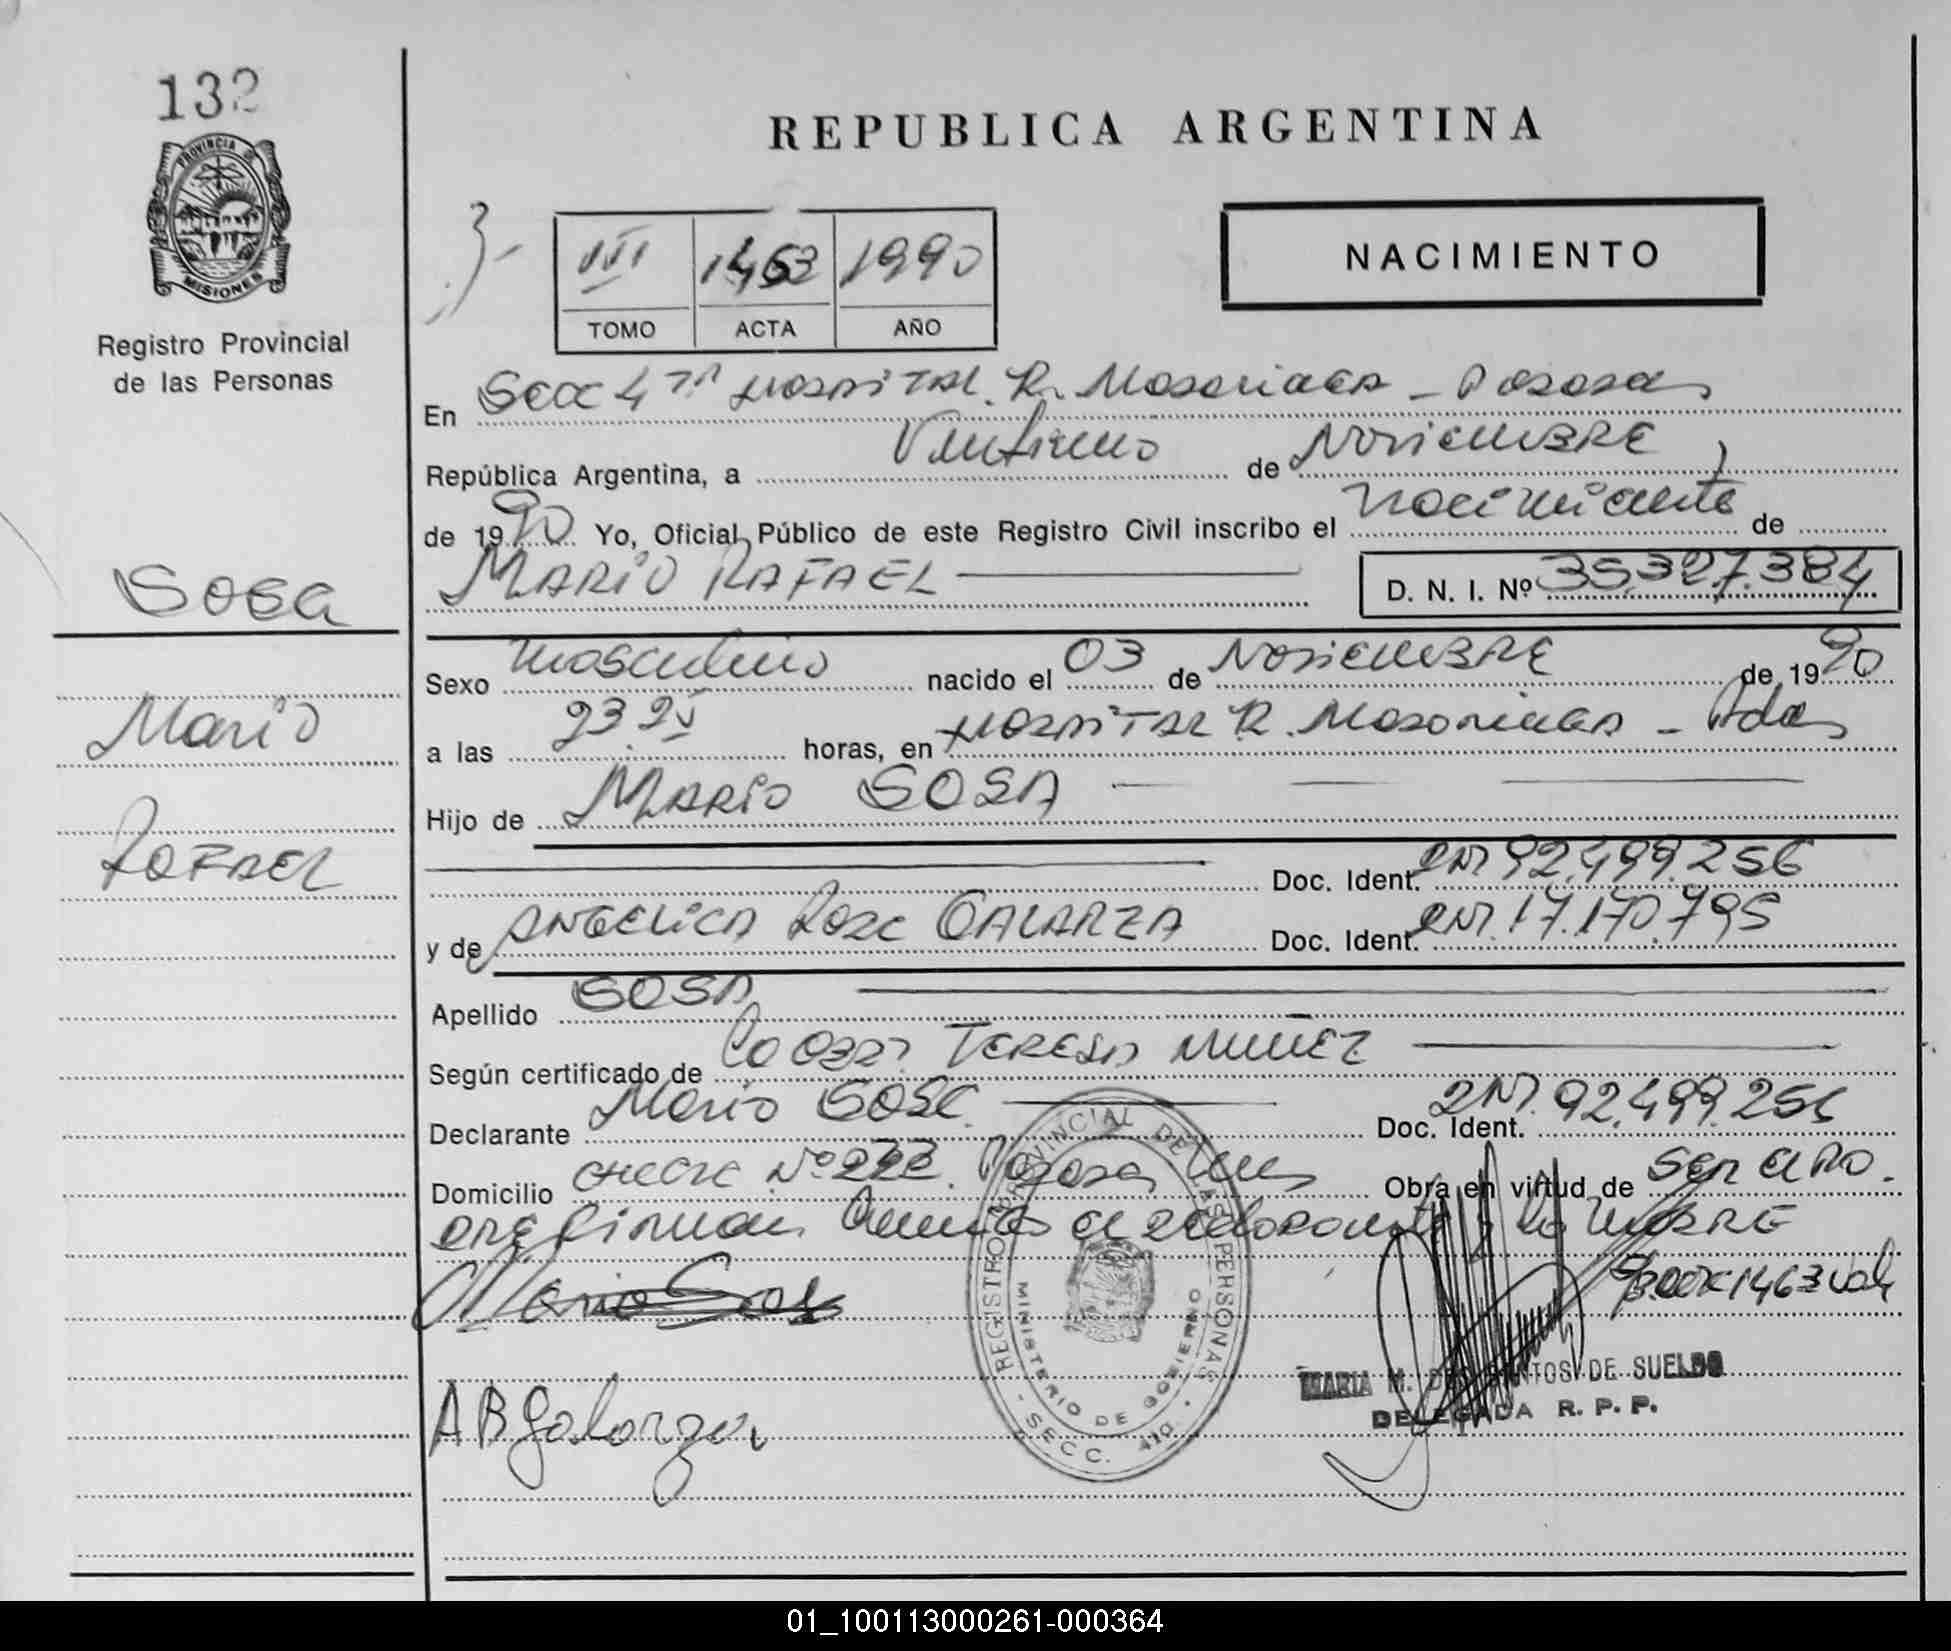 132
PROVINCIA DE
MISIONES
Registro Provincial
de las Personas
REPUBLICA ARGENTINA
III 1463 1990
TOMO ACTA AÑO
NACIMIENTO
En Secc 4ta Hospital R. Madariaga - Posadas
República Argentina, a Veintiuno de Noviembre
de 1990 Yo, Oficial Público de este Registro Civil inscribo el nacimiento de
MARIO RAFAEL D. N. I. Nº 35.327.384
Sosa
Mario
Rafael
Sexo masculino nacido el 03 de Noviembre de 1990
a las 23 25 horas, en Hospital R. Madariaga - Pdas
Hijo de MARIO SOSA
Doc. Ident. DNI 92.499.256
y de ANGELICA ROSA GALARZA Doc. Ident. DNI. 17.170.795
Apellido SOSA
Según certificado de la Obst. TERESA MUÑEZ
Declarante Mario SOSA Doc. Ident. DNI. 92.499.256
Domicilio Nº Posadas Mnes Obra en virtud de ser el PA
DRE firman el declarante y la MADRE
Mario Sosa
1463 vale
A B Galarza
REGISTRO PROVINCIAL DE LAS PERSONAS
MINISTERIO DE GOBIERNO
- SECC. 4ta. -
MARIA M. DOS SANTOS DE SUELDO
DELEGADA R. P. P.
01_100113000261-000364